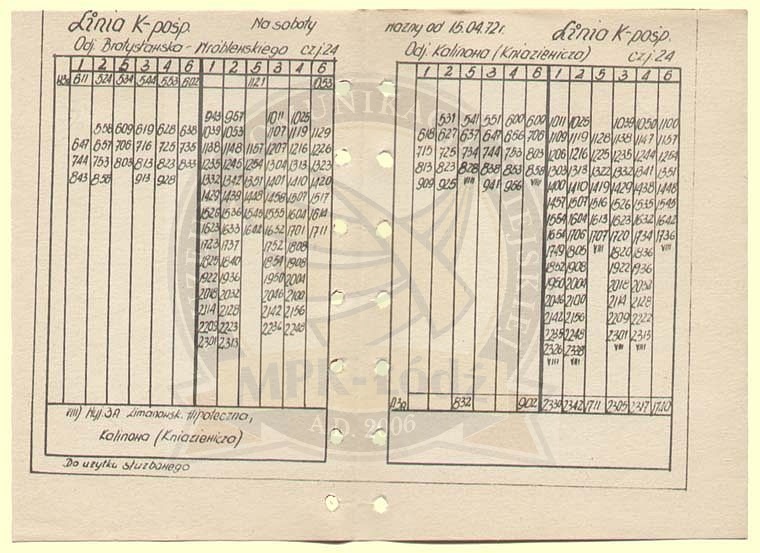 Linia K-pośp. Na soboty
Odj. Bratysławska - Wróblewskiego cz.j.24
1 2 5 3 4 6 1 2 5 3 4 6
611 524 534 544 553 602 1121 1053
943 957 1011 1025
558 609 619 628 638 1039 1053 1107 1119 1129
647 657 706 716 725 735 1138 1148 1157 1207 1216 1226
744 753 803 813 823 833 1235 1245 1254 1304 1313 1323
843 858 913 928 1332 1342 1351 1401 1410 1420
1429 1439 1448 1458 1507 1517
1526 1536 1545 1555 1604 1614
1623 1633 1642 1652 1701 1711
1723 1737 1752 1808
1825 1840 1854 1908
1922 1936 1950 2004
2018 2032 2046 2100
2114 2128 2142 2156
2209 2223 2236 2248
2301 2313
VIII) Wyj. 3A Limanowsk. Hipoteczna,
Kalinowa (Kniaziewicza)
Do użytku służbowego
ważny od 15.04.72r. Linia K-pośp.
Odj. Kalinowa (Kniaziewicza) cz.j.24
1 2 5 3 4 6 1 2 5 3 4 6
531 541 551 600 609 1011 1025 1039 1050 1100
618 627 637 647 656 706 1109 1119 1128 1138 1147 1157
715 725 734 744 753 803 1206 1216 1225 1235 1244 1254
813 823 828 838 853 858 1303 1313 1322 1332 1341 1351
909 925 VIII 941 956 VIII 1400 1410 1419 1429 1438 1448
1457 1507 1516 1526 1535 1545
1554 1604 1613 1623 1632 1642
1654 1706 1707 1720 1734 1736
1749 1805 VIII 1820 1836 VIII
1852 1908 1922 1936
1950 2004 2018 2032
2046 2100 2114 2128
2142 2156 2209 2222
2235 2248 2301 2313
2326 2338 VIII VIII
VIII VIII
832 902 2330 2342 1711 2305 2317 1740
MPK-Łódź
A.D. 2006